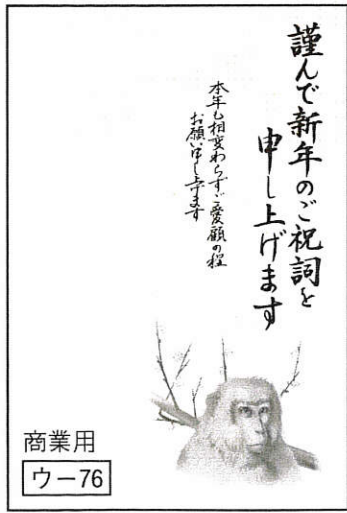 謹んで新年のご祝詞を
申し上げます
本年も相変わらずご愛顧の程
お願い申し上げます
商業用
ウー76